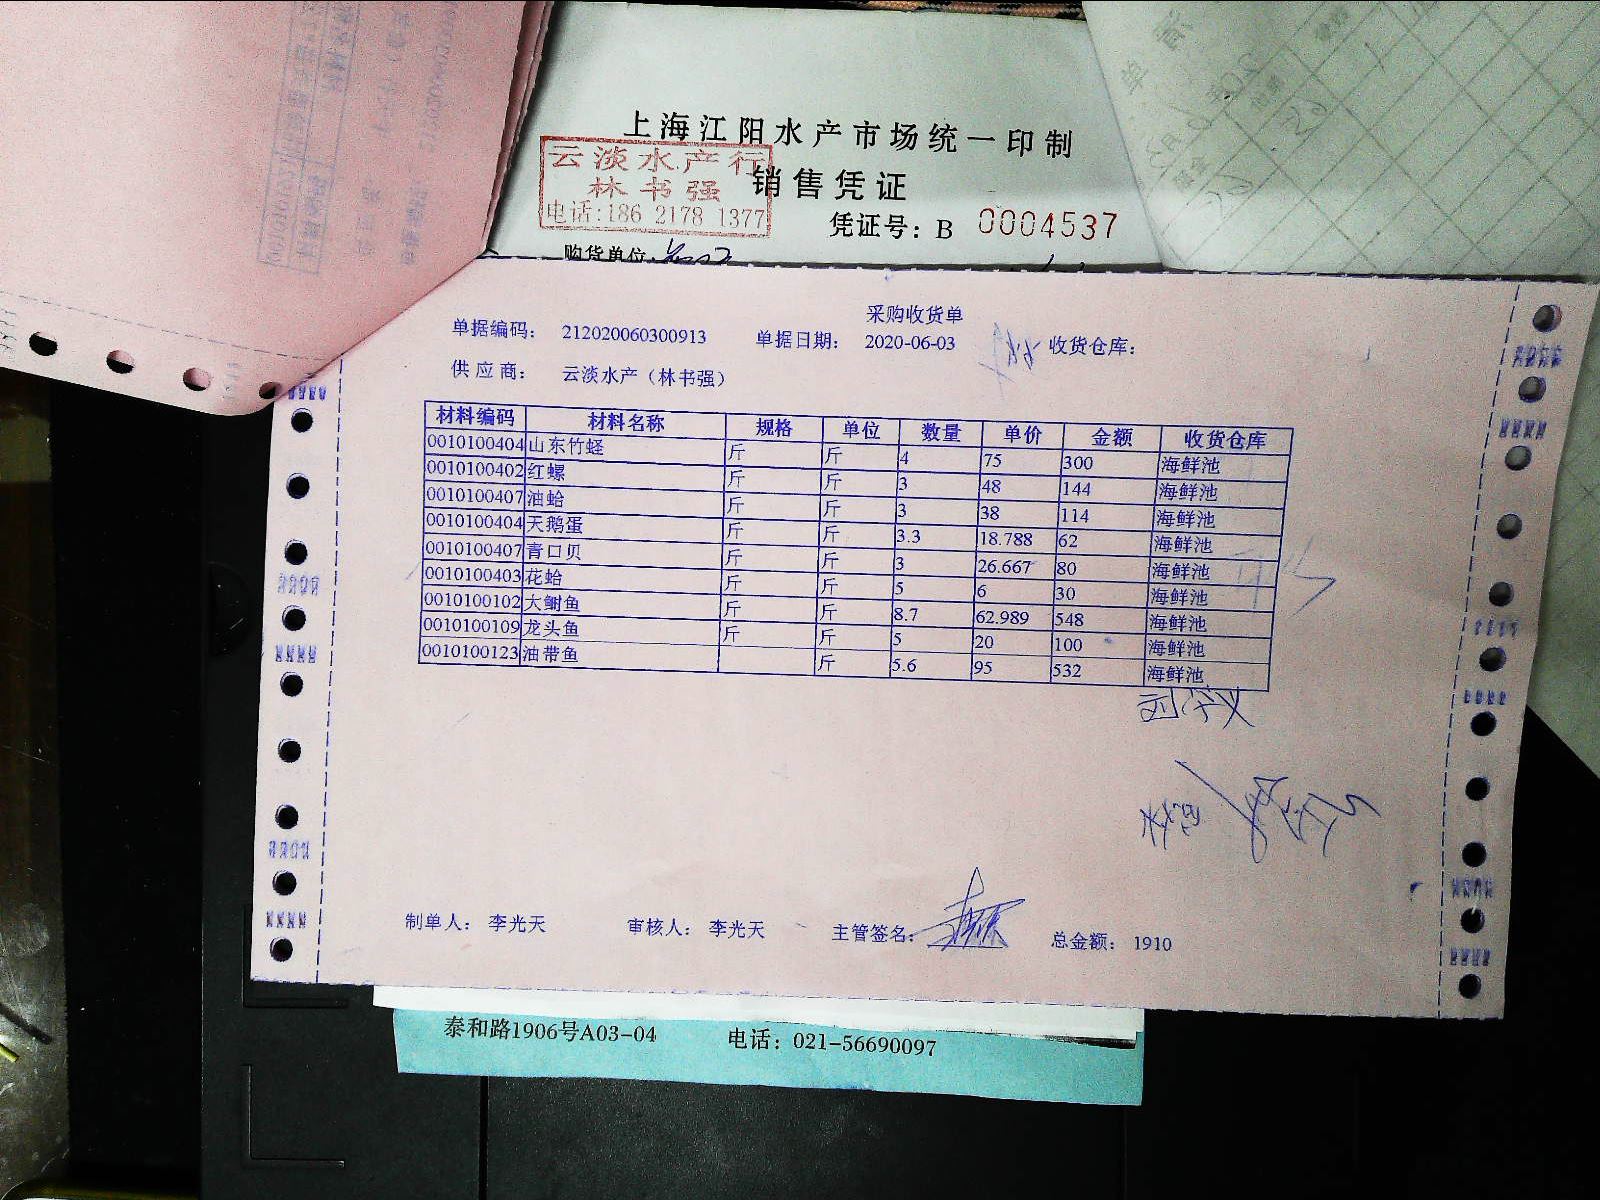 上海江阳水产市场统一印制
云淡水产行
林书强
电话:186 2178 1377
销售凭证
凭证号: B 0004537
购货单位
采购收货单
单据编码: 212020060300913 单据日期: 2020-06-03 收货仓库:
供应商: 云淡水产（林书强）
材料编码 材料名称 规格 单位 数量 单价 金额 收货仓库
0010100404 山东竹蛏 斤 斤 4 75 300 海鲜池
0010100402 红螺 斤 斤 3 48 144 海鲜池
0010100407 油蛤 斤 斤 3 38 114 海鲜池
0010100404 天鹅蛋 斤 斤 3.3 18.788 62 海鲜池
0010100407 青口贝 斤 斤 3 26.667 80 海鲜池
0010100403 花蛤 斤 斤 5 6 30 海鲜池
0010100102 大鲥鱼 斤 斤 8.7 62.989 548 海鲜池
0010100109 龙头鱼 斤 斤 5 20 100 海鲜池
0010100123 油带鱼 斤 5.6 95 532 海鲜池
制单人: 李光天 审核人: 李光天 主管签名: 总金额: 1910
泰和路1906号A03-04 电话: 021-56690097